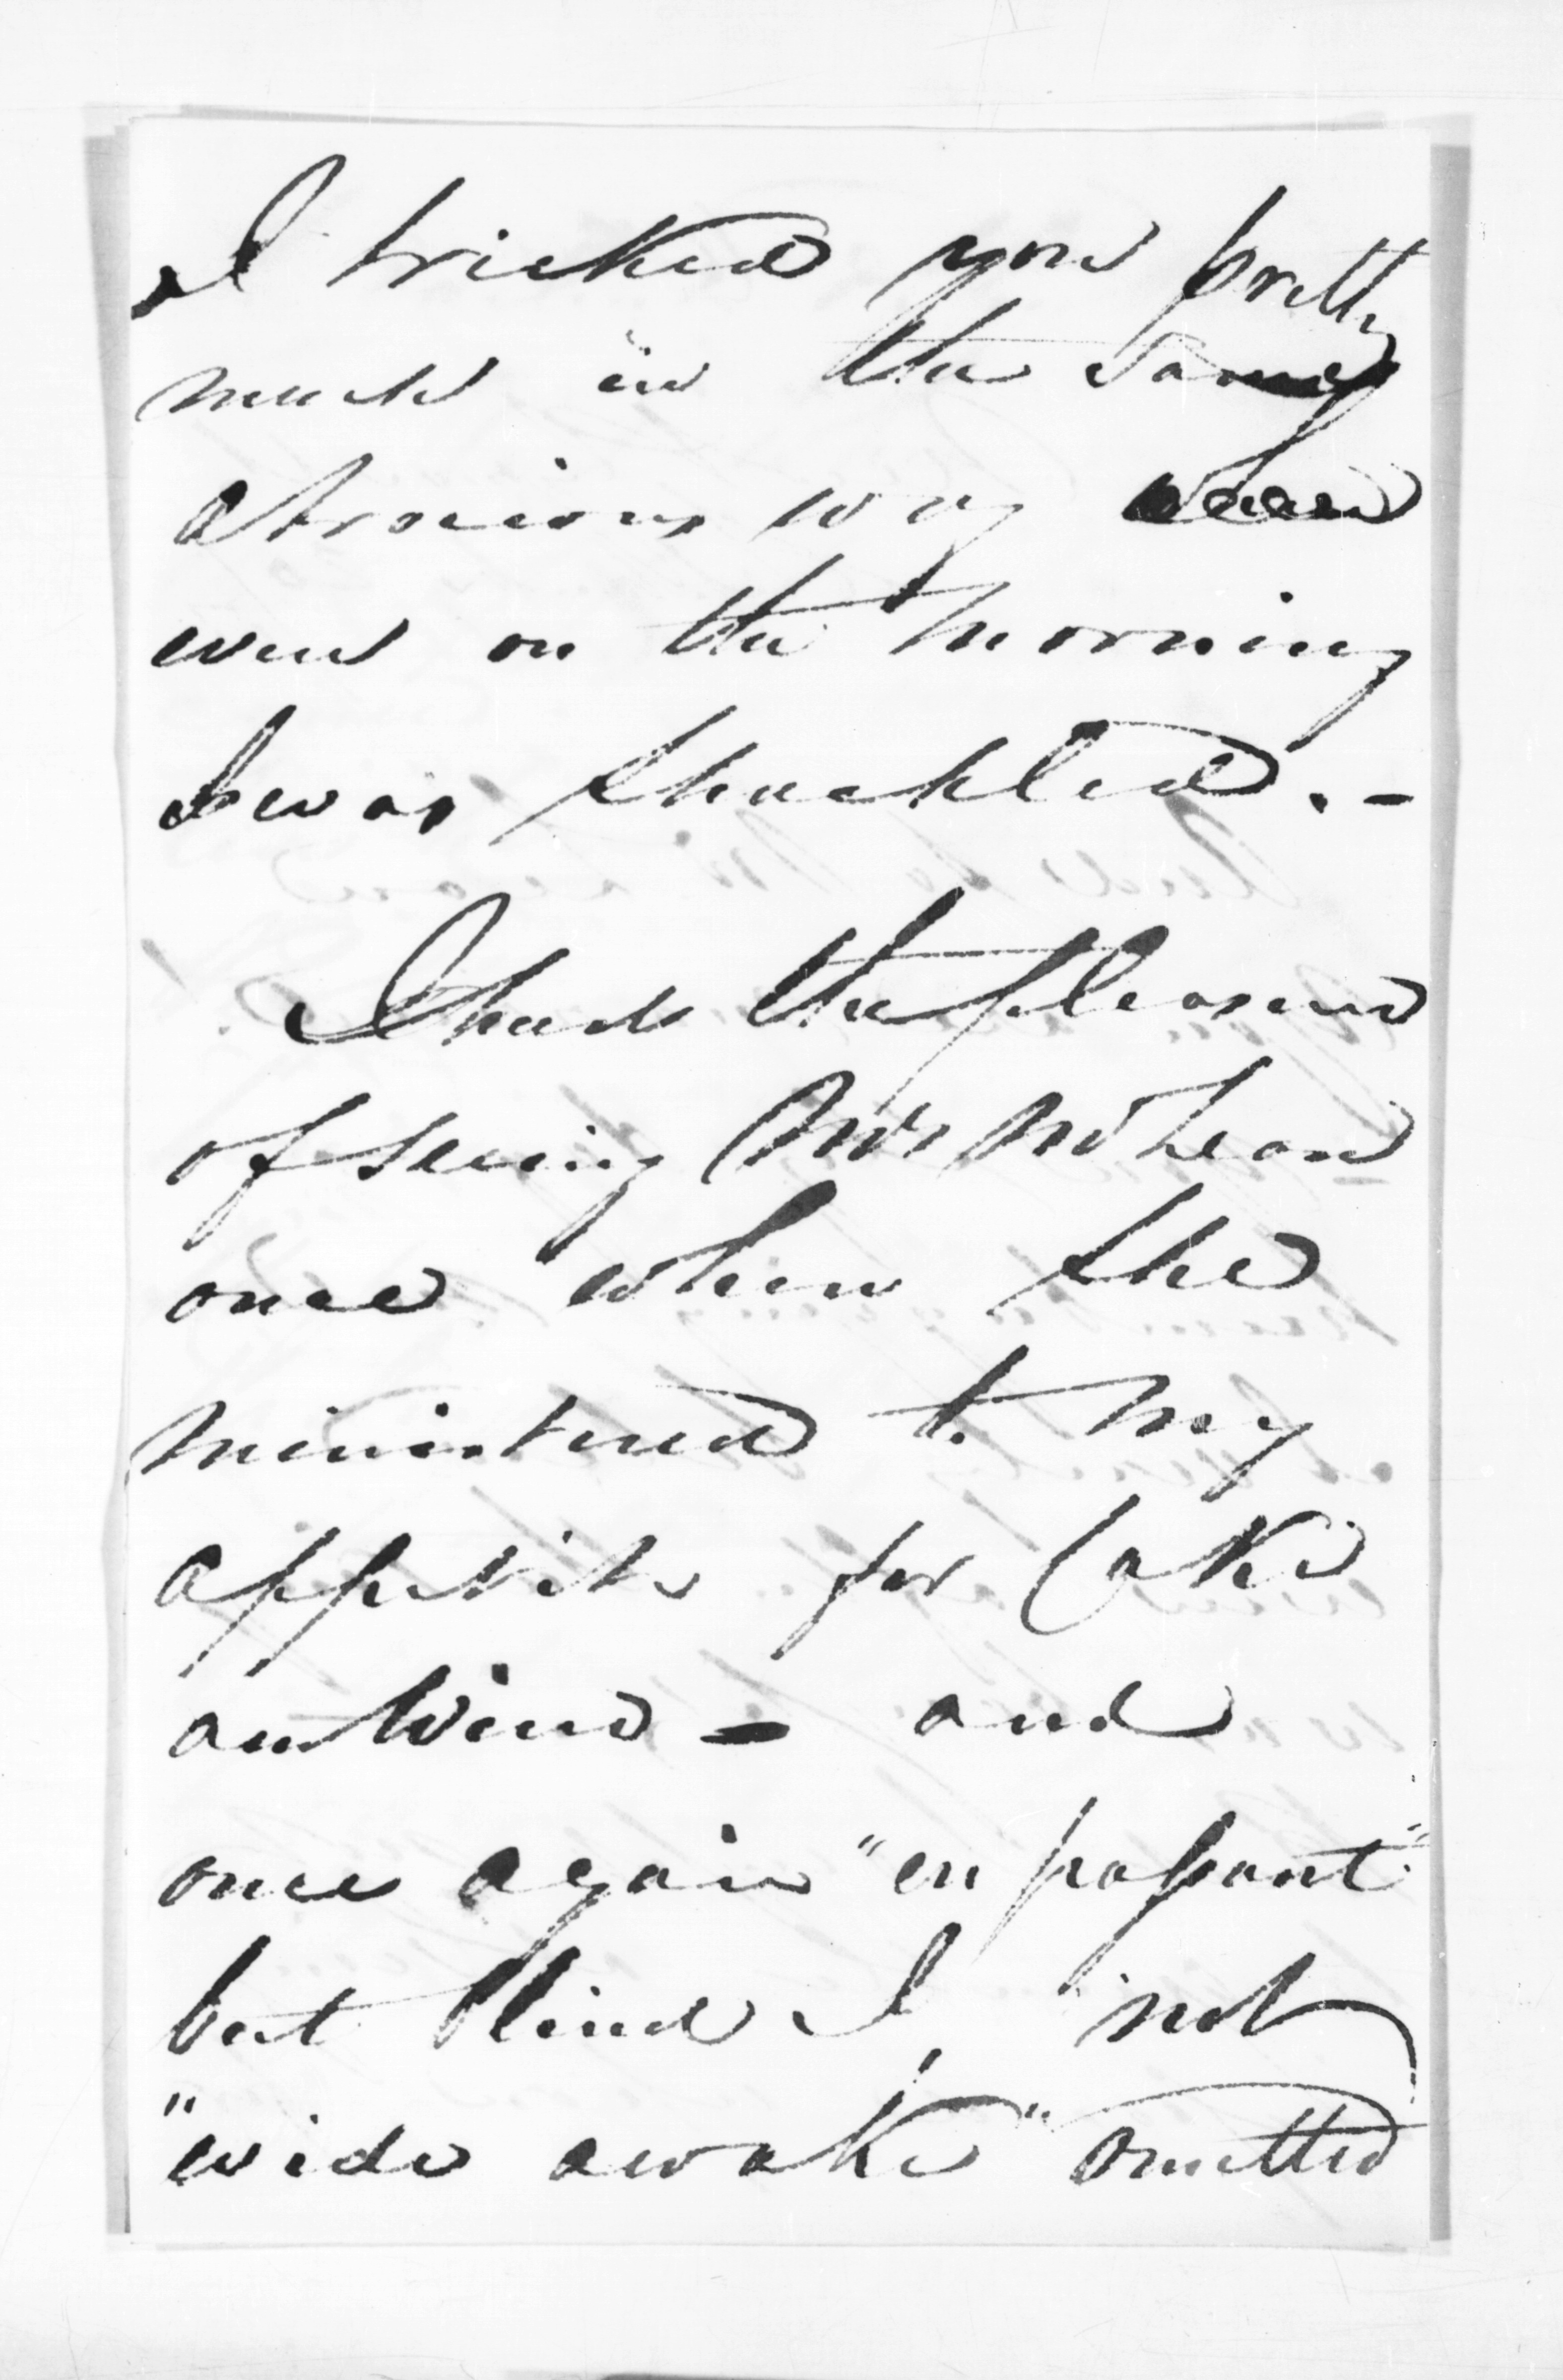 I tricked you pretty
much in the same
atrocious way
even on the morning
I was shackled. -
I had the pleasure
of seeing Mrs McLean
once when she
ministered to my
appetite for Cake
an Wine - and
once again "en passant"
but blind I, not
"wide awake" omitted